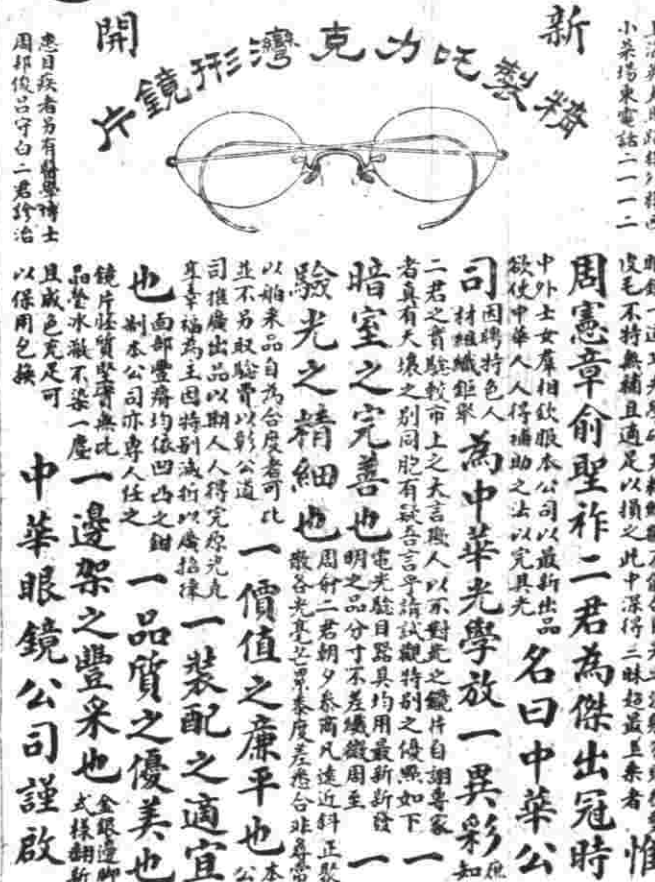 新開
精製吃力克灣形鏡片
小菜場東電話二一一二
患目疾者另有醫學博士
周邦俊呂守白二君診治
皮毛不特無補且適足以損之此中深得三昧超最上乘者惟
周憲章俞聖祚二君為傑出冠時
中外士女羣相欽服本公司以最新出品
欲使中華人人得補助之法以完具光
名曰中華公
司因聘特色人
材組織鉅聚
為中華光學放一異彩庶
知
二君之實驗較市上之大言欺人以不對光之鏡片自詡專家
者真有天壤之別同胞有疑吾言乎請試觀特別之優點如下一
暗室之完善也
電光驗目器具均用最新新發
明之品分寸不差纖微周至
一
驗光之精細也
周俞二君朝夕參商凡遠近斜正聚
散各光毫芒累黍度差悉合非尋常
以舶來品自為合度者可比
並不另取驗費以彰公道
一價值之廉平也本
公
司推廣出品以期人人得完原光克
享幸福為主因特別減折以廣招徠
一裝配之適宜
也
面部豐瘠均依凹凸之鉗
制本公司亦專人任之
一品質之優美也
鏡片胚質堅實無比
晶瑩冰澈不染一塵
一邊架之豐采也
金銀邊脚
式樣翻新
且成色充足可
以保用包換
中華眼鏡公司謹啟